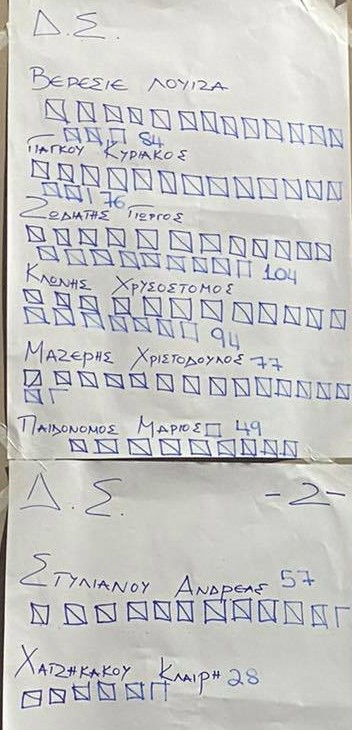 Δ.Σ.
ΒΕΡΕΣΙΕ ΛΟΥΙΖΑ
84
ΓΙΑΓΚΟΥ ΚΥΡΙΑΚΟΣ
76
ΖΩΔΙΑΤΗΣ ΓΙΩΡΓΟΣ
104
ΚΛΟΝΗΣ ΧΡΥΣΟΣΤΟΜΟΣ
94
ΜΑΖΕΡΗΣ ΧΡΙΣΤΟΔΟΥΛΟΣ 77
ΠΑΙΔΟΝΟΜΟΣ ΜΑΡΙΟΣ 49
Δ.Σ. -2-
ΣΤΥΛΙΑΝΟΥ ΑΝΔΡΕΑΣ 57
ΧΑΤΖΗΚΑΚΟΥ ΚΛΑΙΡΗ 28